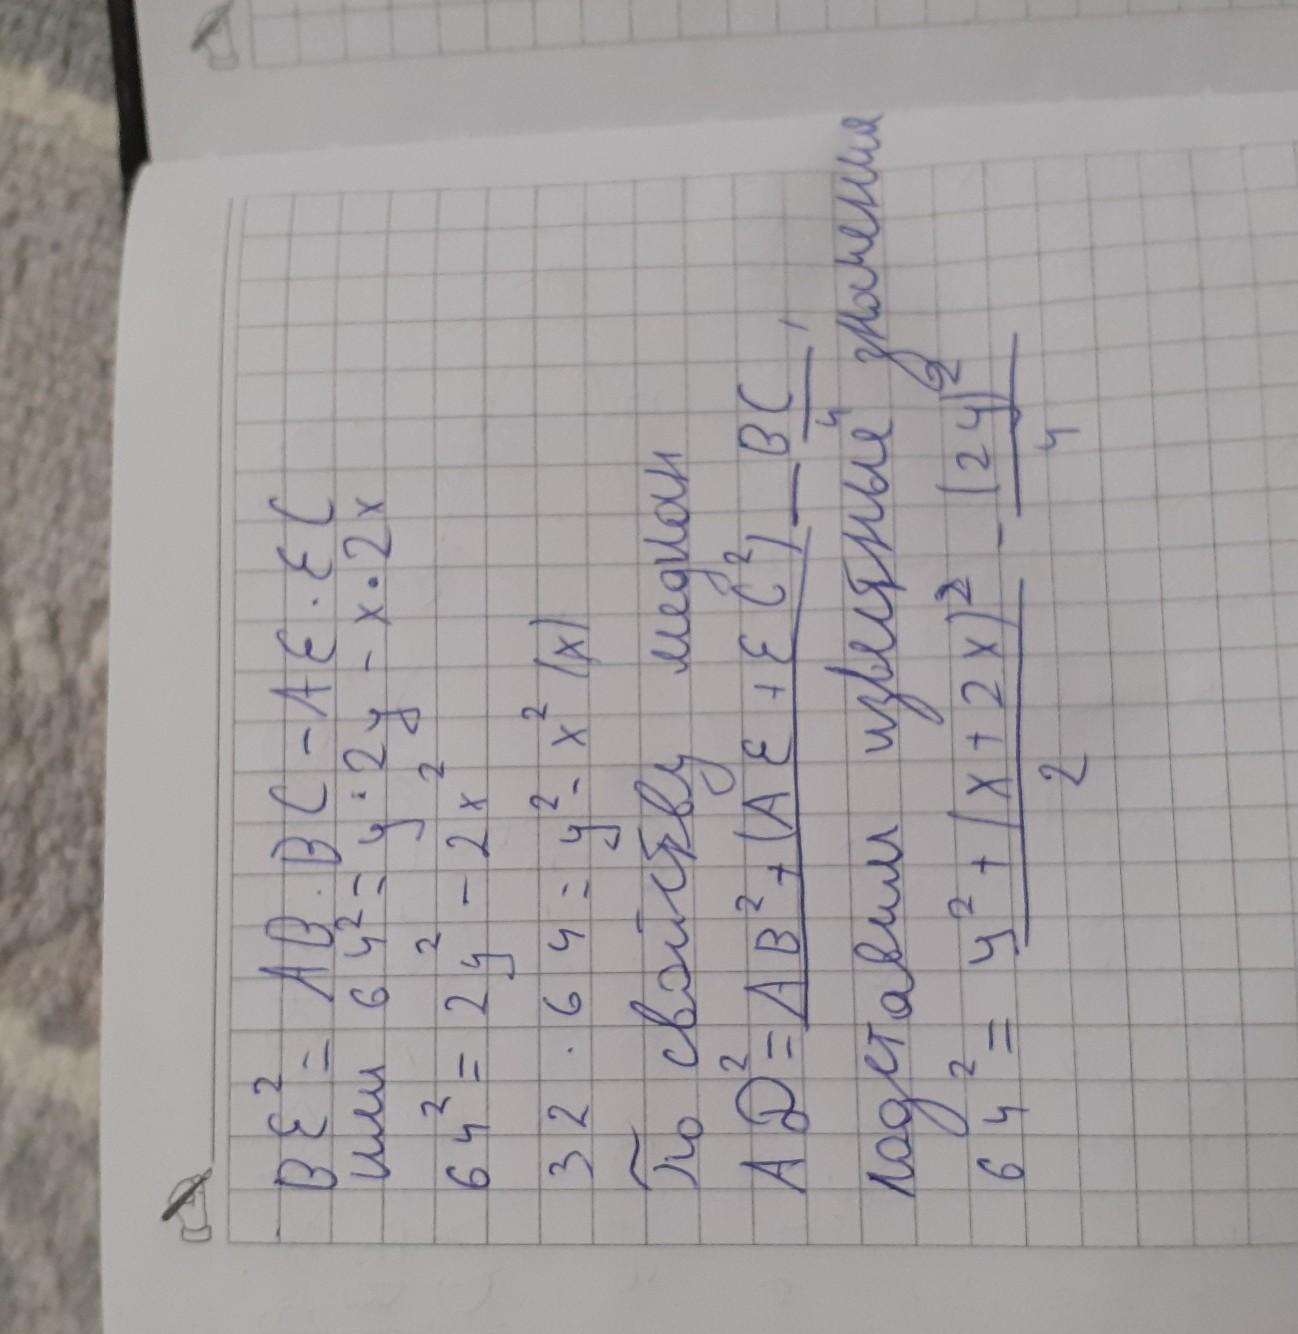 BE² = AB · BC - AE · EC
или 64² = y · 2y - x · 2x
64² = 2y² - 2x²
32 · 64 = y² - x² (x)
По свойству медиан
AD² = AB² + (AE + EC²) / 2 - BC / 4
подставим известные значения
64² = y² + (x + 2x)² / 2 - (2y)² / 4